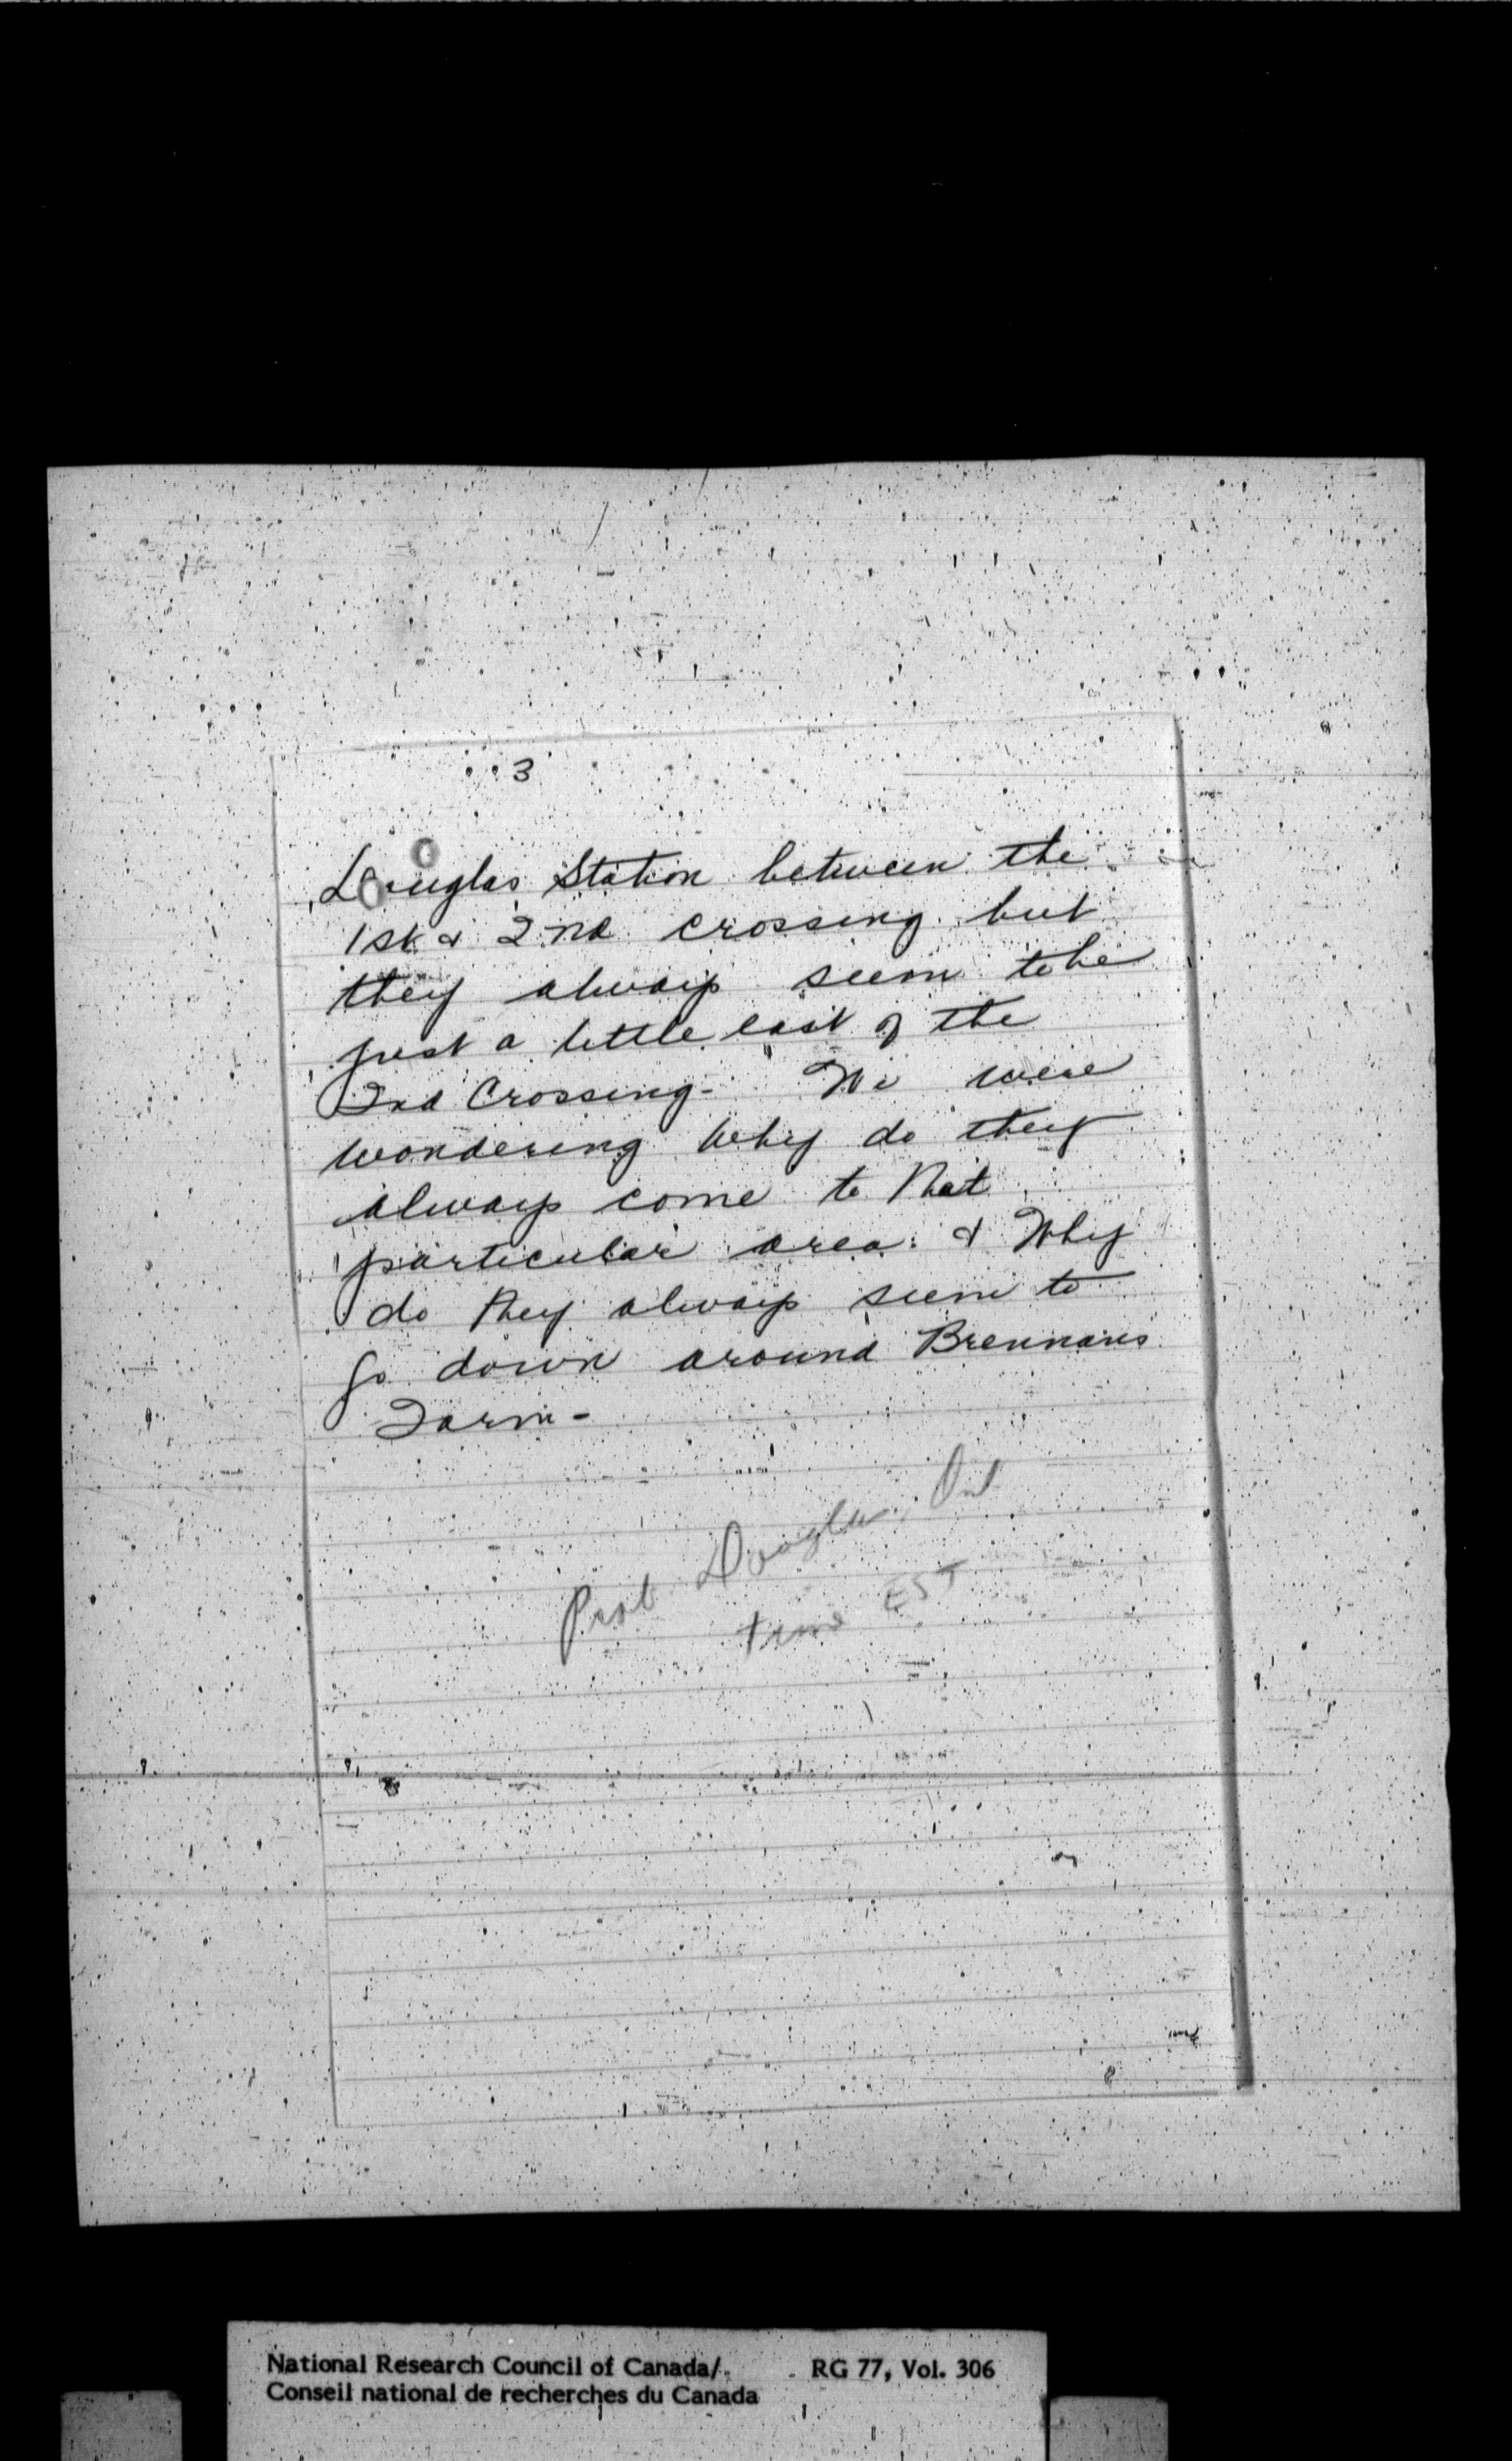 3
Douglas Station between the
1st & 2nd crossing but
they always seem to be
just a little east of the
2nd Crossing - We were
wondering why do they
always come to that
particular area & Why
do they always seem to
go down around Brennans
Farm -
Prob Douglas, Ont
time EST
National Research Council of Canada/ RG 77, Vol. 306
Conseil national de recherches du Canada